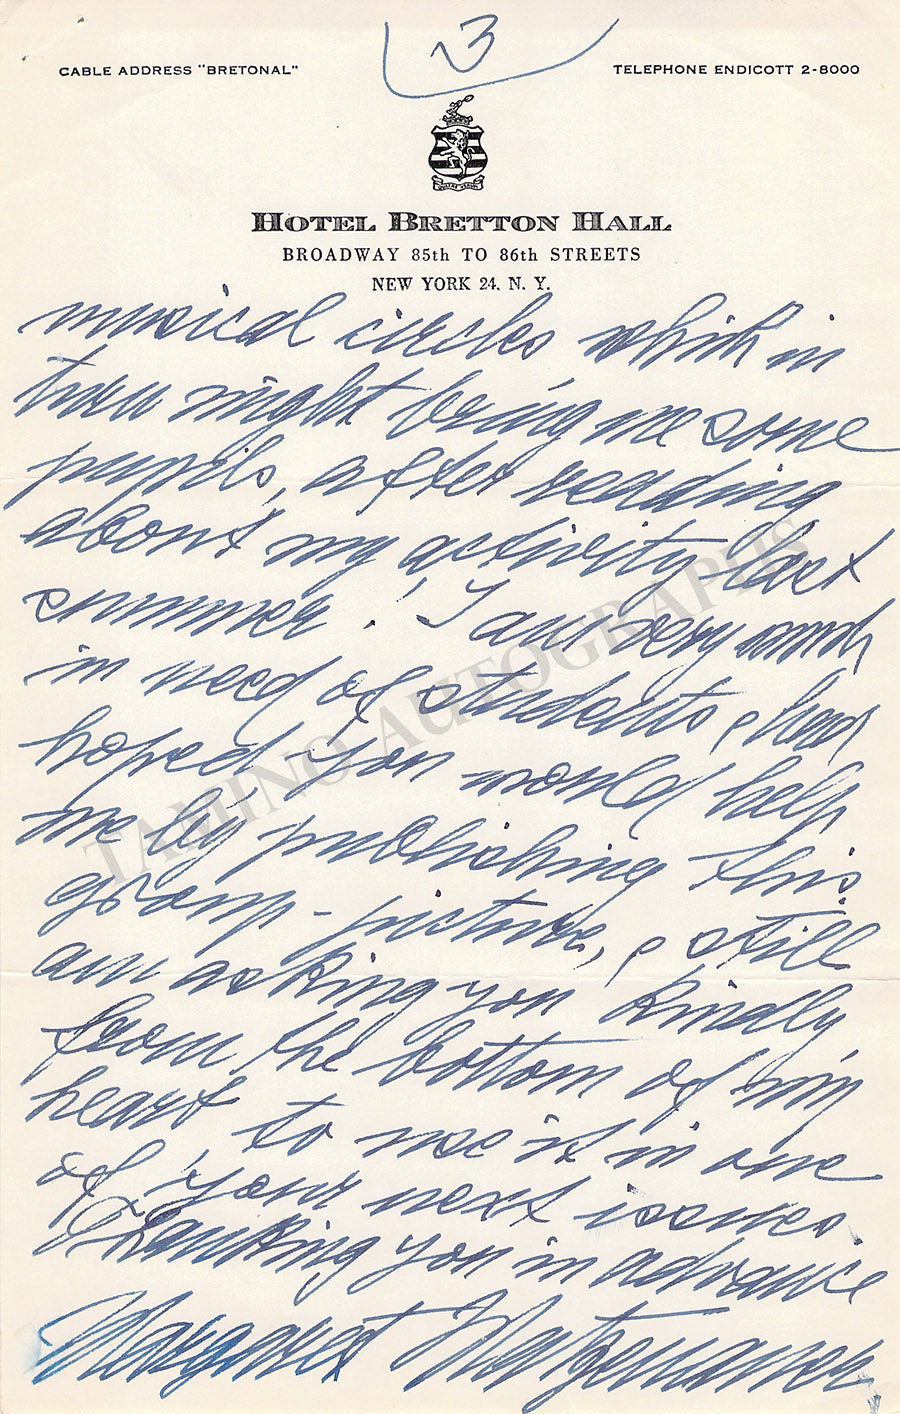 3
CABLE ADDRESS "BRETONAL"
TELEPHONE ENDICOTT 2-8000
HOTEL BRETTON HALL
BROADWAY 85th TO 86th STREETS
NEW YORK 24, N. Y.
musical circles which in
turn might bring me some
pupils, after reading
about my activity last
summer. I am very much
in need of students, had
hoped you would help
me by publishing this
group-picture, still
am asking you kindly
from the bottom of my
heart to use it in one
of your next issues.
Thanking you in advance
Margaret Matzenauer
TAMINO AUTOGRAPHS